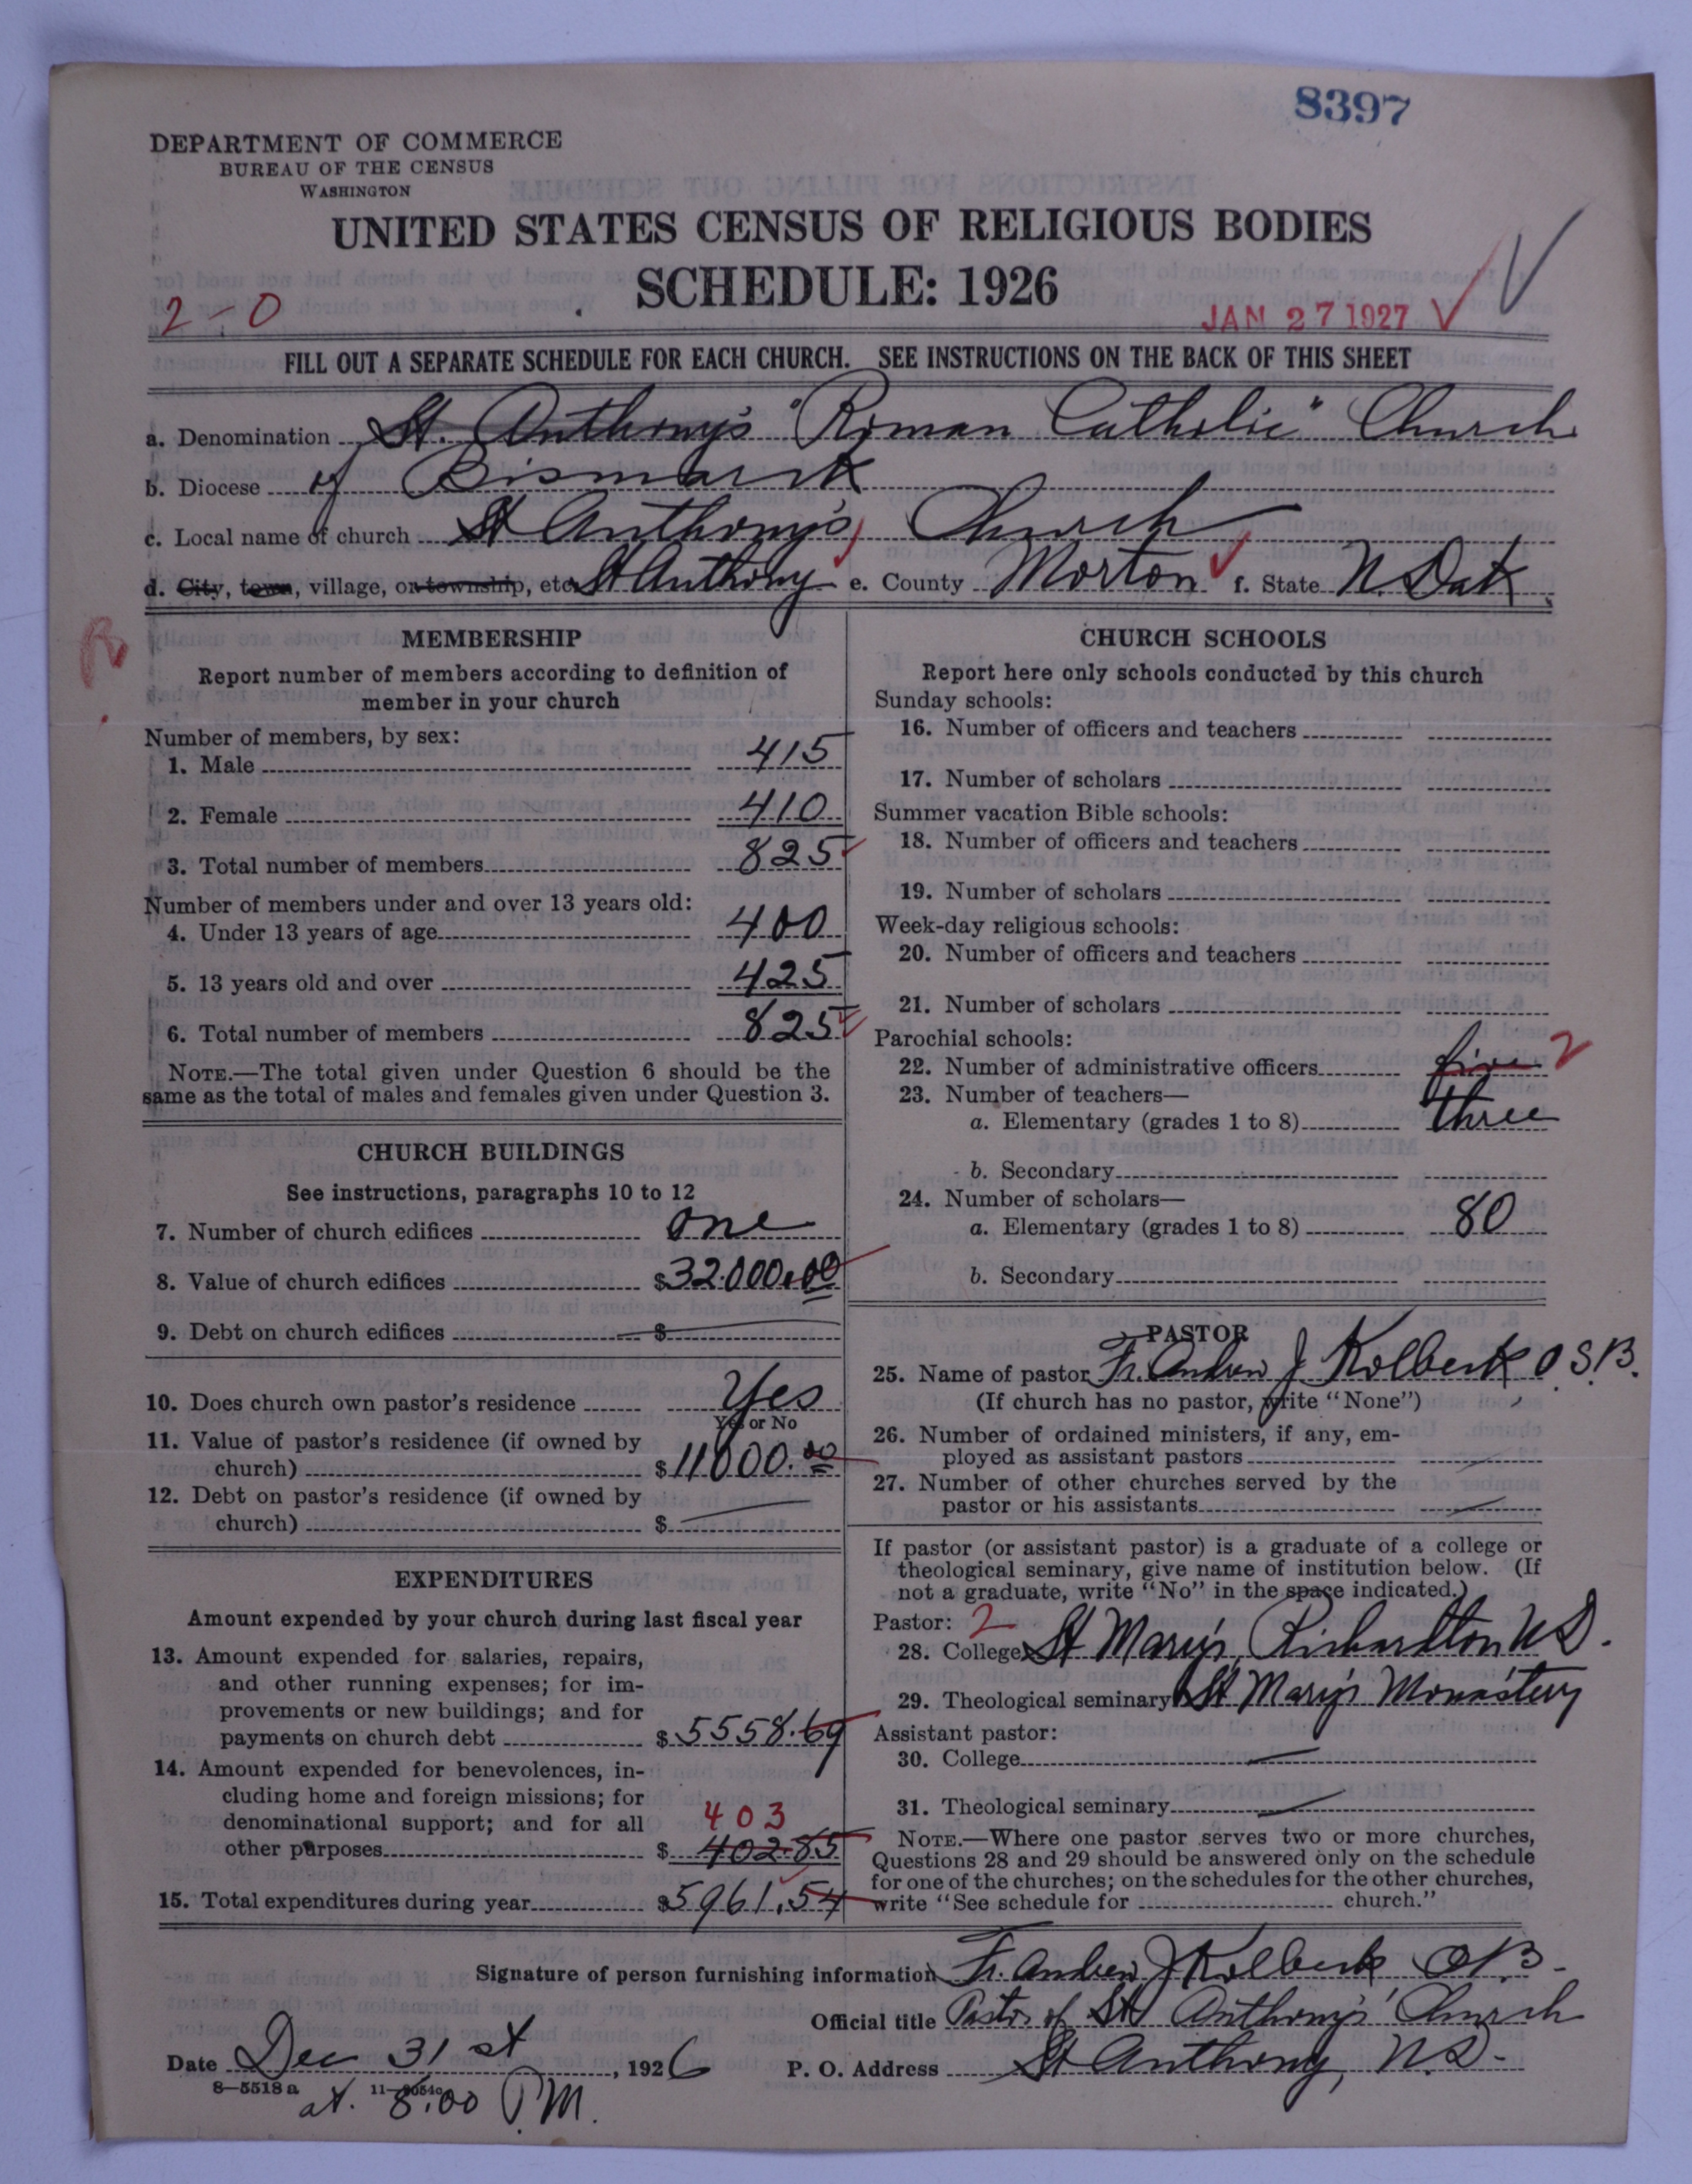 8397
DEPARTMENT OF COMMERCE
BUREAU OF THE CENSUS
WASHINGTON
UNITED STATES CENSUS OF RELIGIOUS BODIES
SCHEDULE: 1926
2-0
JAN 27 1927
FILL OUT A SEPARATE SCHEDULE FOR EACH CHURCH. SEE INSTRUCTIONS ON THE BACK OF THIS SHEET
a. Denomination St. Anthony's "Roman Catholic" Church
b. Diocese of Bismarck
c. Local name of church St Anthony's, Church
d. City, town, village, or township, etc. St Anthony e. County Morton f. State N. Dak
MEMBERSHIP
Report number of members according to definition of
member in your church
Number of members, by sex:
1. Male 415
2. Female 410
3. Total number of members 825
Number of members under and over 13 years old:
4. Under 13 years of age 400
5. 13 years old and over 425
6. Total number of members 825
NOTE.—The total given under Question 6 should be the
same as the total of males and females given under Question 3.
CHURCH BUILDINGS
See instructions, paragraphs 10 to 12
7. Number of church edifices one
8. Value of church edifices $32.000.00
9. Debt on church edifices $
10. Does church own pastor's residence Yes
Yes or No
11. Value of pastor's residence (if owned by
church) $11000.00
12. Debt on pastor's residence (if owned by
church) $
EXPENDITURES
Amount expended by your church during last fiscal year
13. Amount expended for salaries, repairs,
and other running expenses; for im-
provements or new buildings; and for
payments on church debt $5558.69
14. Amount expended for benevolences, in-
cluding home and foreign missions; for
denominational support; and for all 403
other purposes $402.85
15. Total expenditures during year $5961.54
CHURCH SCHOOLS
Report here only schools conducted by this church
Sunday schools:
16. Number of officers and teachers
17. Number of scholars
Summer vacation Bible schools:
18. Number of officers and teachers
19. Number of scholars
Week-day religious schools:
20. Number of officers and teachers
21. Number of scholars
Parochial schools:
22. Number of administrative officers five 2
23. Number of teachers—
a. Elementary (grades 1 to 8) three
b. Secondary
24. Number of scholars—
a. Elementary (grades 1 to 8) 80
b. Secondary
PASTOR
25. Name of pastor Fr. Andrew J Kolberk O.S.B.
(If church has no pastor, write "None")
26. Number of ordained ministers, if any, em-
ployed as assistant pastors
27. Number of other churches served by the
pastor or his assistants
If pastor (or assistant pastor) is a graduate of a college or
theological seminary, give name of institution below. (If
not a graduate, write "No" in the space indicated.)
Pastor: 2
28. College St Mary's, Richardton N D.
29. Theological seminary St Mary's Monastery
Assistant pastor:
30. College
31. Theological seminary
NOTE.—Where one pastor serves two or more churches,
Questions 28 and 29 should be answered only on the schedule
for one of the churches; on the schedules for the other churches,
write "See schedule for church."
Signature of person furnishing information Fr. Andrew J Kolberk OSB.
Official title Pastor of St Anthony's Church
Date Dec 31 st, 1926 P. O. Address St Anthony, N.D.
8—5518 a
at. 8:00 P.M.